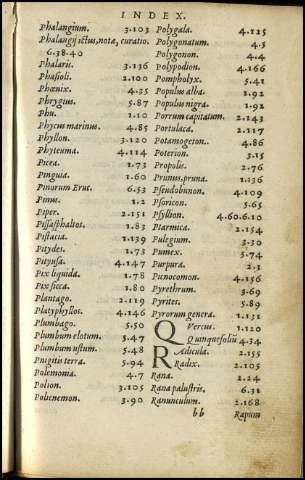 INDEX.
Phalangium. 3.103
Phalangij ictus, notæ, curatio.
6.38.40
Phalaris. 3.136
Phasioli. 2.100
Phœnix. 4.35
Phrygius. 5.87
Phu. 1.10
Phycus marinus. 4.85
Phyllon. 3.120
Phyteuma. 4.114
Picea. 1.73
Pinguia. 1.60
Pinorum Eruc. 6.53
Pinus. 1.2
Piper. 2.151
Pissasphaltos. 1.83
Pistacia. 1.139
Pitydes. 1.73
Pityusa. 4.147
Pix liquida. 1.78
Pix sicca. 1.80
Plantago. 2.119
Platyphyllos. 4.146
Plumbago. 5.50
Plumbum elotum. 5.47
Plumbum ustum. 5.48
Pnigitis terra. 5.94
Polemonia. 4.7
Polion. 3.105
Polycnemon. 3.90
Polygala. 4.125
Polygonatum. 4.5
Polygonon. 4.4
Polypodion. 4.166
Pompholyx. 5.41
Populus alba. 1.92
Populus nigra. 1.92
Porrum capitatum. 2.143
Portulaca. 2.117
Potamogeton. 4.86
Poterion. 3.15
Propolis. 2.76
Prunus, pruna. 1.136
Pseudobunon. 4.109
Psoricon. 5.65
Psyllion. 4.60.6.10
Ptarmica. 2.154
Pulegium. 3.30
Pumex. 5.74
Purpura. 2.3
Pycnocomon. 4.156
Pyrethrum. 3.69
Pyrites. 5.89
Pyrorum genera. 1.131
Quercus. 1.120
Quinquefoliū 4.34
Radicula. 2.155
Radix. 2.105
Rana. 2.24
Rana palustris. 6.31
Ranunculum. 2.168
bb Rapum